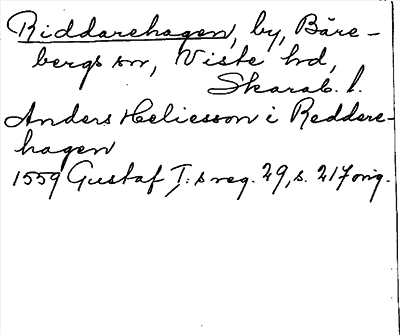 Riddarehagen, by, Bäre-
bergs sn, Viste hd,
Skarab. l.
Anders Heliesson i Reddare-
hagen
1559 Gustaf I:s reg. 29, s. 217 orig.